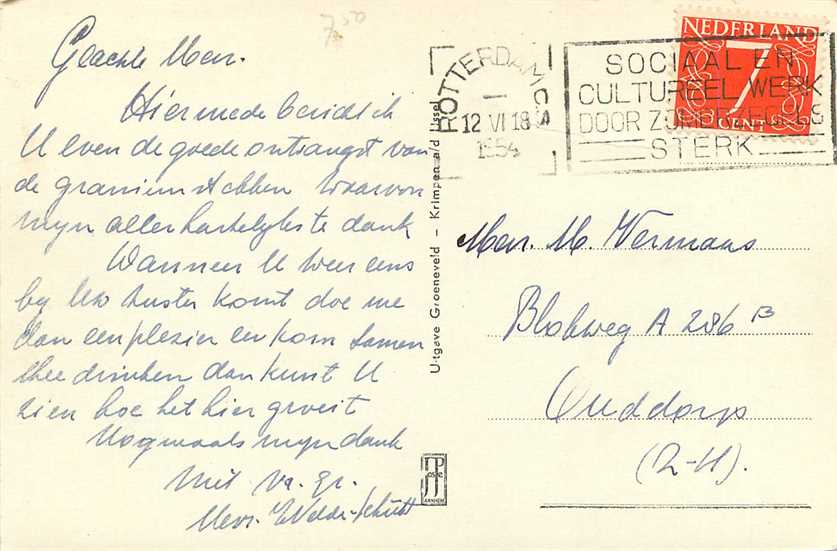 7⁵⁰
Geachte Mevr.
Hiermede bericht ik
U even de goede ontvangst van
de geraniumstekken waarvoor
mijn allerhartelijkste dank
Wanneer U weer eens
bij Uw zuster komt doe me
dan een plezier en kom samen
thee drinken dan kunt U
zien hoe het hier groeit
Nogmaals mijn dank
Met vr. gr.
Mevr.
Uitgave Groeneveld – Krimpen a/d IJssel
JP
ARNHEM
ROTTERDAM CS
12 VI 18
1954
SOCIAAL EN
CULTUREEL WERK
DOOR ZOMERZEGELS
STERK
NEDERLAND
7
CENT
Mevr. M. Vermaas
Blokweg A 286 B
Ouddorp
(Z-H).